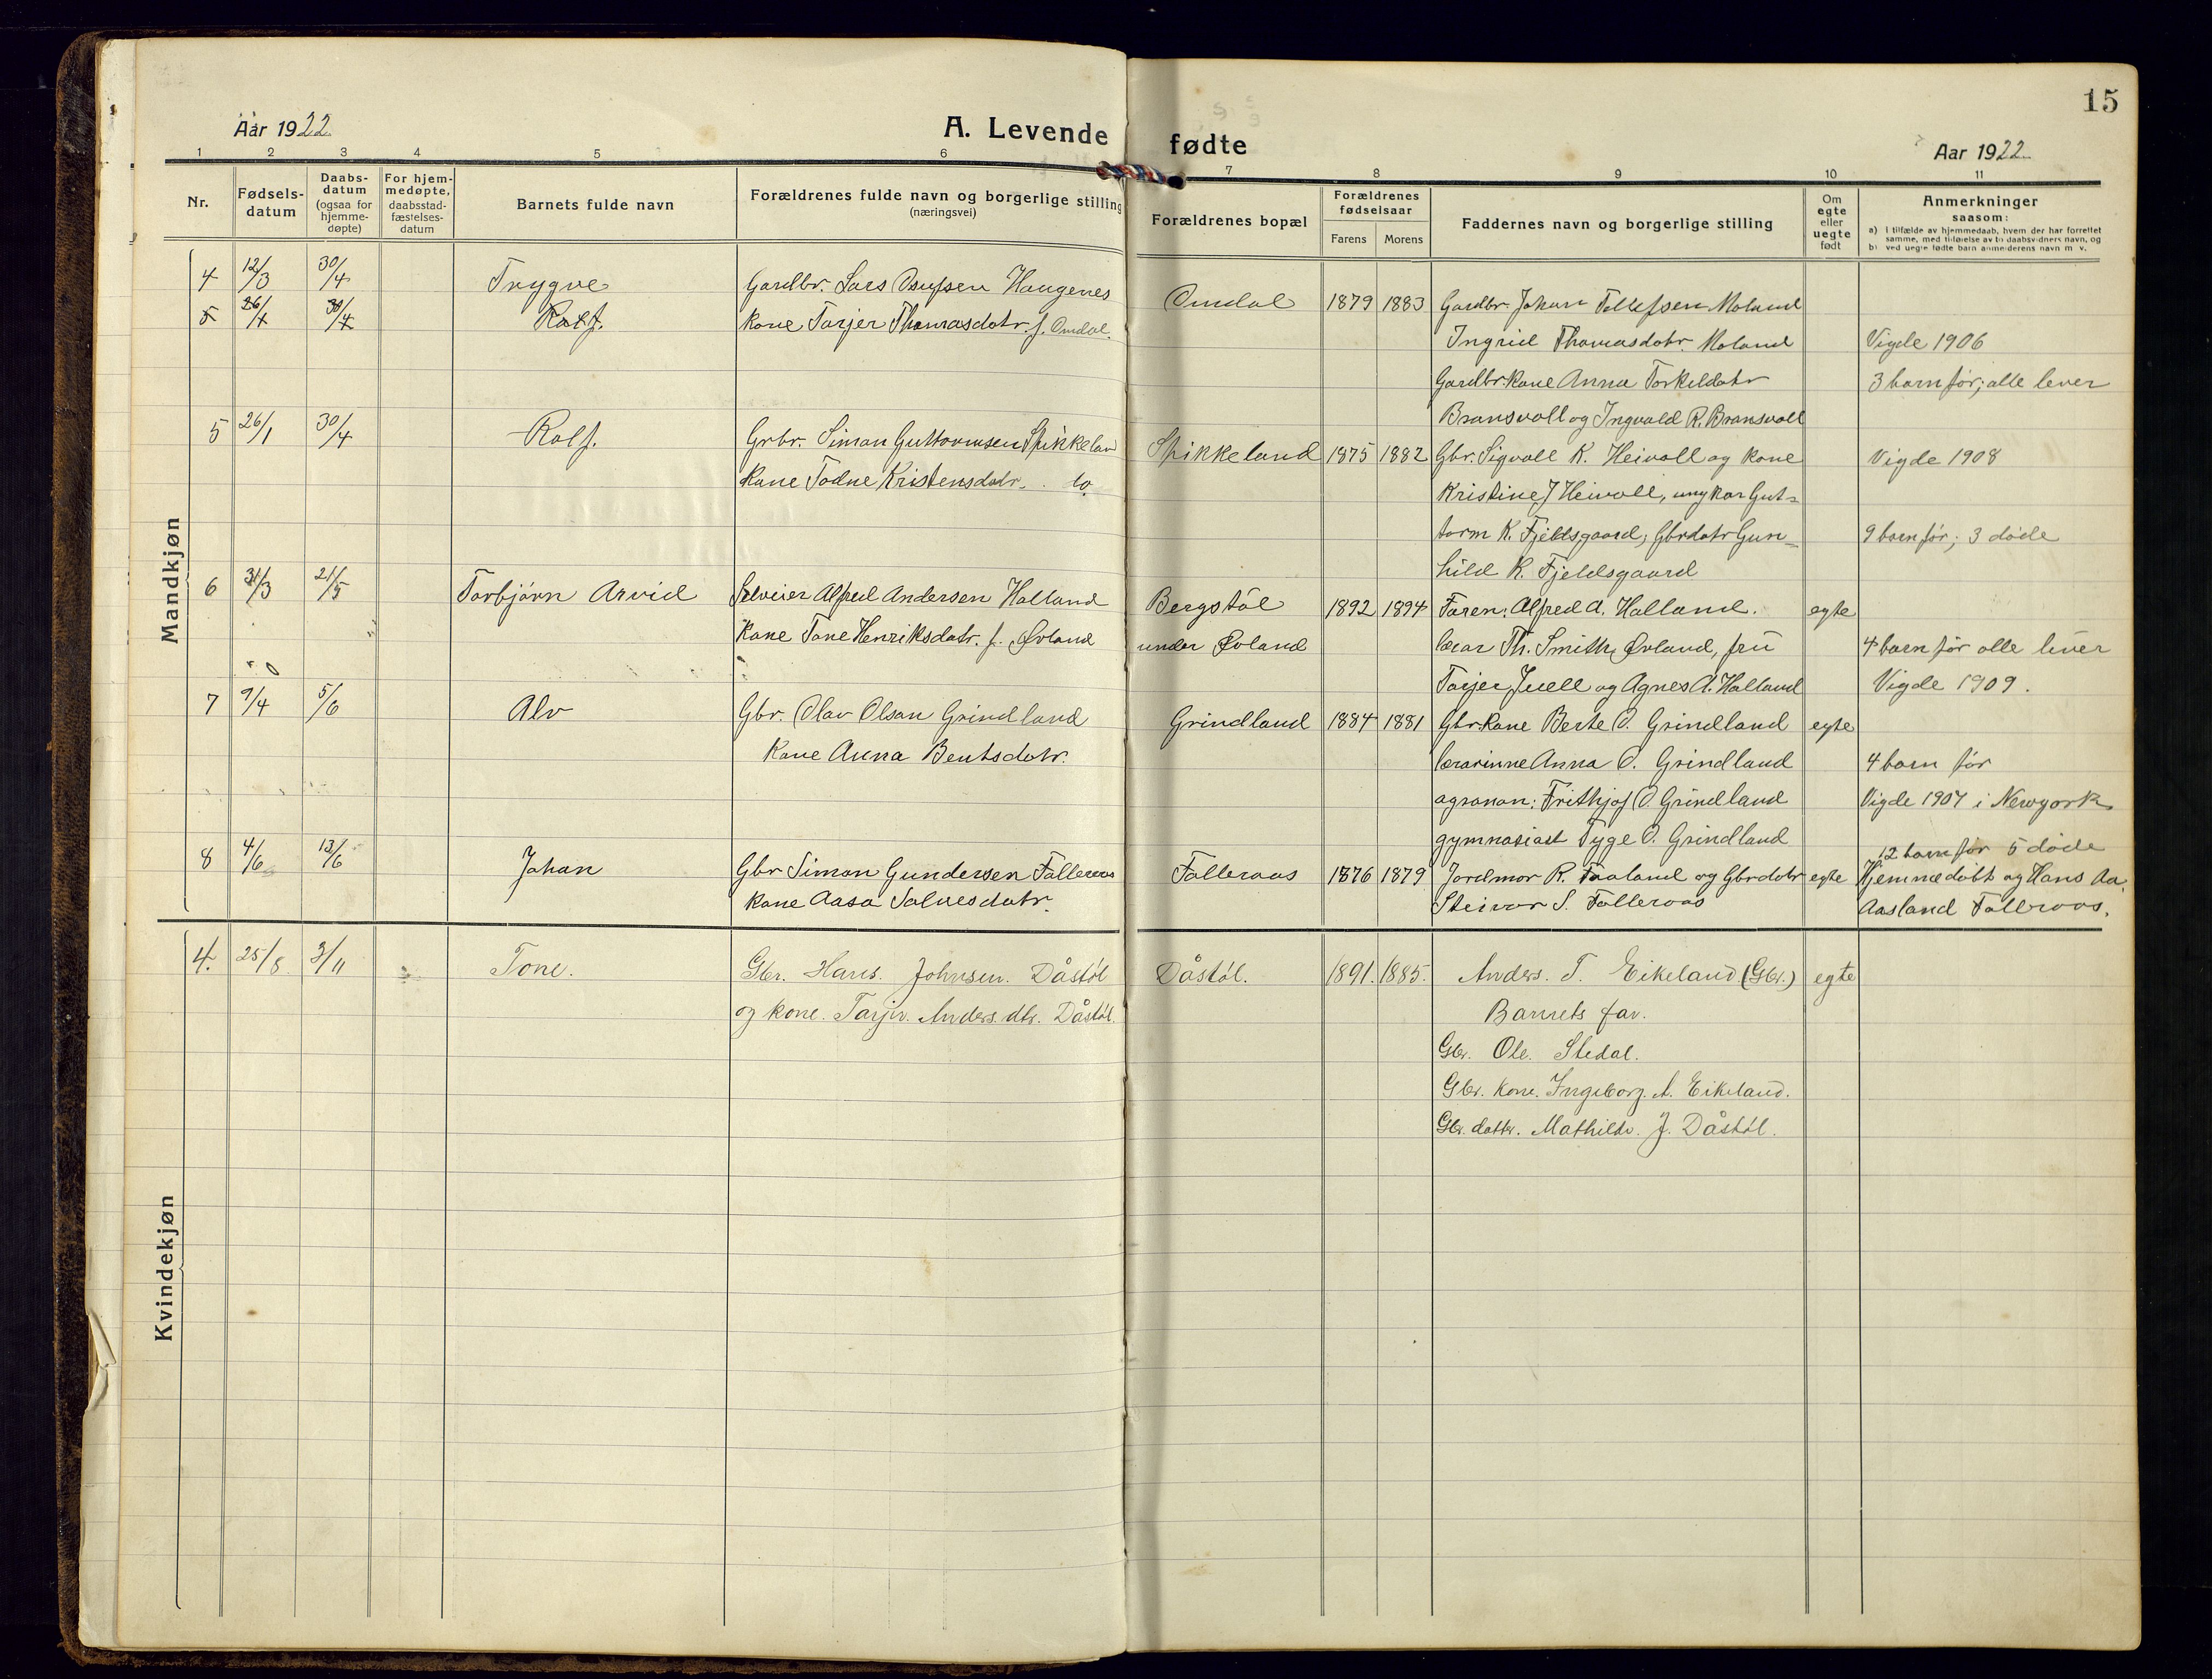 15
Aar 1922
A. Levende fødte
Aar 1922
1 2 3 4 5 6 7 8 9 10 11
Nr.
Fødsels-
datum
Daabs-
datum
(ogsaa for
hjemme-
døpte)
For hjem-
medøpte,
daabsstad-
fæstelses-
datum
Barnets fulde navn
Forældrenes fulde navn og borgerlige stilling
(næringsvei)
Forældrenes bopæl
Forældrenes
fødselsaar
Farens Morens
Faddernes navn og borgerlige stilling
Om
egte
eller
uegte
født
Anmerkninger
saasom:
a) I tilfælde av hjemmedaab, hvem der har forrettet
samme, med tilføielse av to daabsvidners navn, og
b) ved uegte fødte barn anmelderens navn m. v.
Mandkjøn
4 12/3 30/4 Trygve
Gardbr. Lars Osufsen Haugenes
Omdal 1879 1883
Gardbr. Johan Tellefsen Moland
5 26/1 30/4 Rolf.
kone Tarjer Thomasdatr. f. Omdal.
Ingrid Thomasdatr. Moland
Vigde 1906
Gardbr.kone Anna Torkildatr
3 barn før; alle lever
Bransvoll og Ingvald R. Bransvoll
5 26/1 30/4 Rolf.
Grbr. Simon Guttormsen Spikkelan
Spikkeland 1875 1882
Gbr. Sigvall K. Heivoll og kone
Vigde 1908
kone Todne Kristensdatr.
Kristine J Heivoll, ungkar Gut-
torm K. Fjeldsgaard; Gbrdatr Gun-
9 barn før; 3 døde
hild K. Fjeldsgaard
6 31/3 21/5 Torbjørn Arvid
Selveier Alfred Andersen Holland
Bergstøl 1892 1894
Faren: Alfred A. Holland.
egte
kone Tone Henriksdatr. f. Øvland
under Øvland
lærar Th. Smith, Øvland, fru
4 barn før alle lever
Tarjer Juell og Agnes A. Holland
Vigde 1909.
7 9/4 5/6 Alv
Gbr. Olav Olson Grindland
Grindland 1884 1881
Gbr.kone Berte O. Grindland
egte
kone Anna Bentsdatr.
lærarinne Anna O. Grindland
4 barn før
agronom: Frithjof O. Grindland
Vigde 1907 i Newyork
gymnasiast Tyge O. Grindland
12 barn før 5 døde
8 4/6 13/6 Johan
Gbr Simon Gundersen Falleraas
Falleraas 1876 1879
Jordmor R. Faaland og Gbrdatr
egte
Hjemmedøbt og Hans Aa.
kone Aasa Salvesdatr.
Steinar S. Falleraas
Aasland Falleraas.
Kvindekjøn
4. 25/8 3/11 Tone.
Gbr. Hans. Johnsen. Dåstøl
Dåstøl. 1891. 1885.
Anders. T. Eikeland (Gbr.)
egte
og kone. Tarjer. Anders.dtr. Dåstøl.
Barnets far.
Gbr. Ole. Stedal.
Gbr. kone. Ingeborg. A. Eikeland.
Gbr. datter. Mathilde. J. Dåstøl.